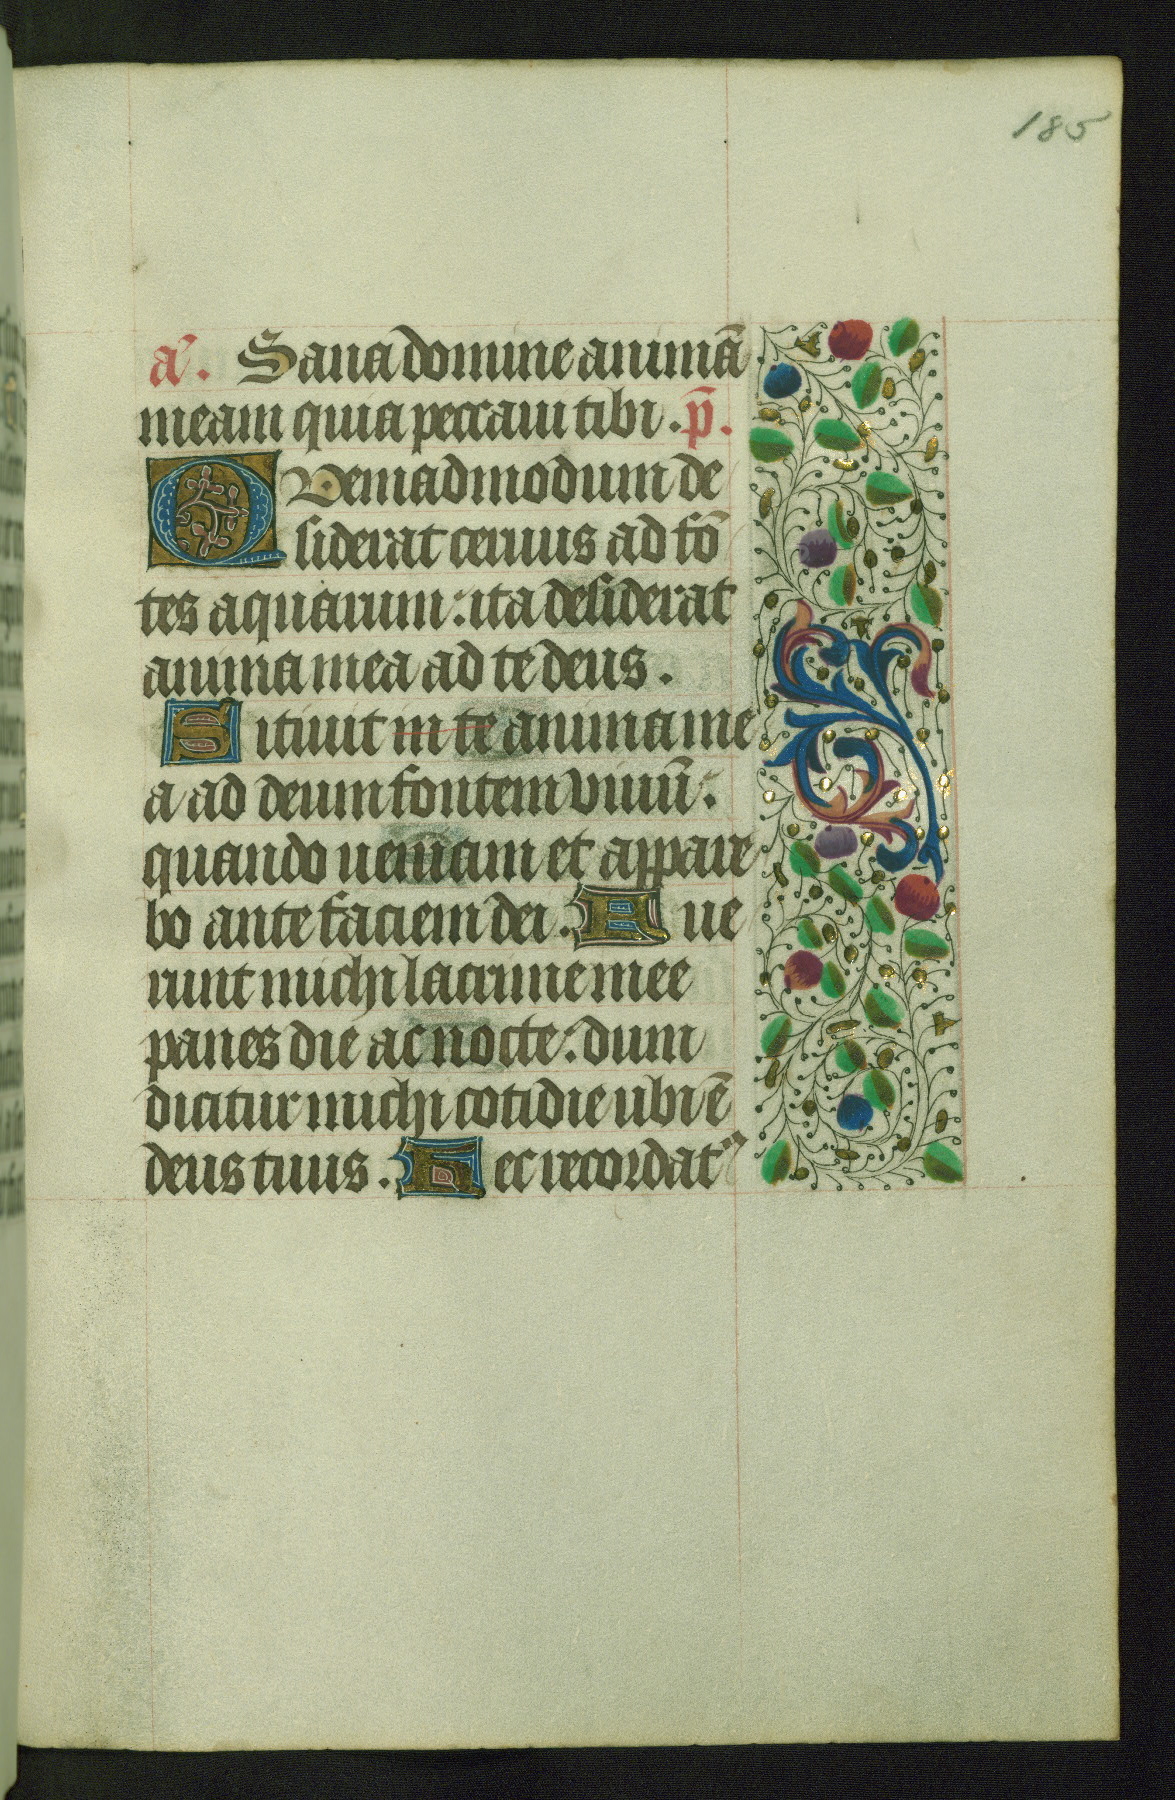 185
a̅. Sana domine animā
meam quia peccaui tibi . p̄.
Quemadmodum de
siderat ceruus ad fō
tes aquarum : ita desiderat
anima mea ad te deus .
Sitiuit in te anima me
a ad deum fontem viuū :
quando ueniam et appare
bo ante faciem dei . Fue
runt michi lacrime mee
panes die ac nocte : dum
dicitur michi cotidie ubi ē
deus tuus . Hec recordatꝰ